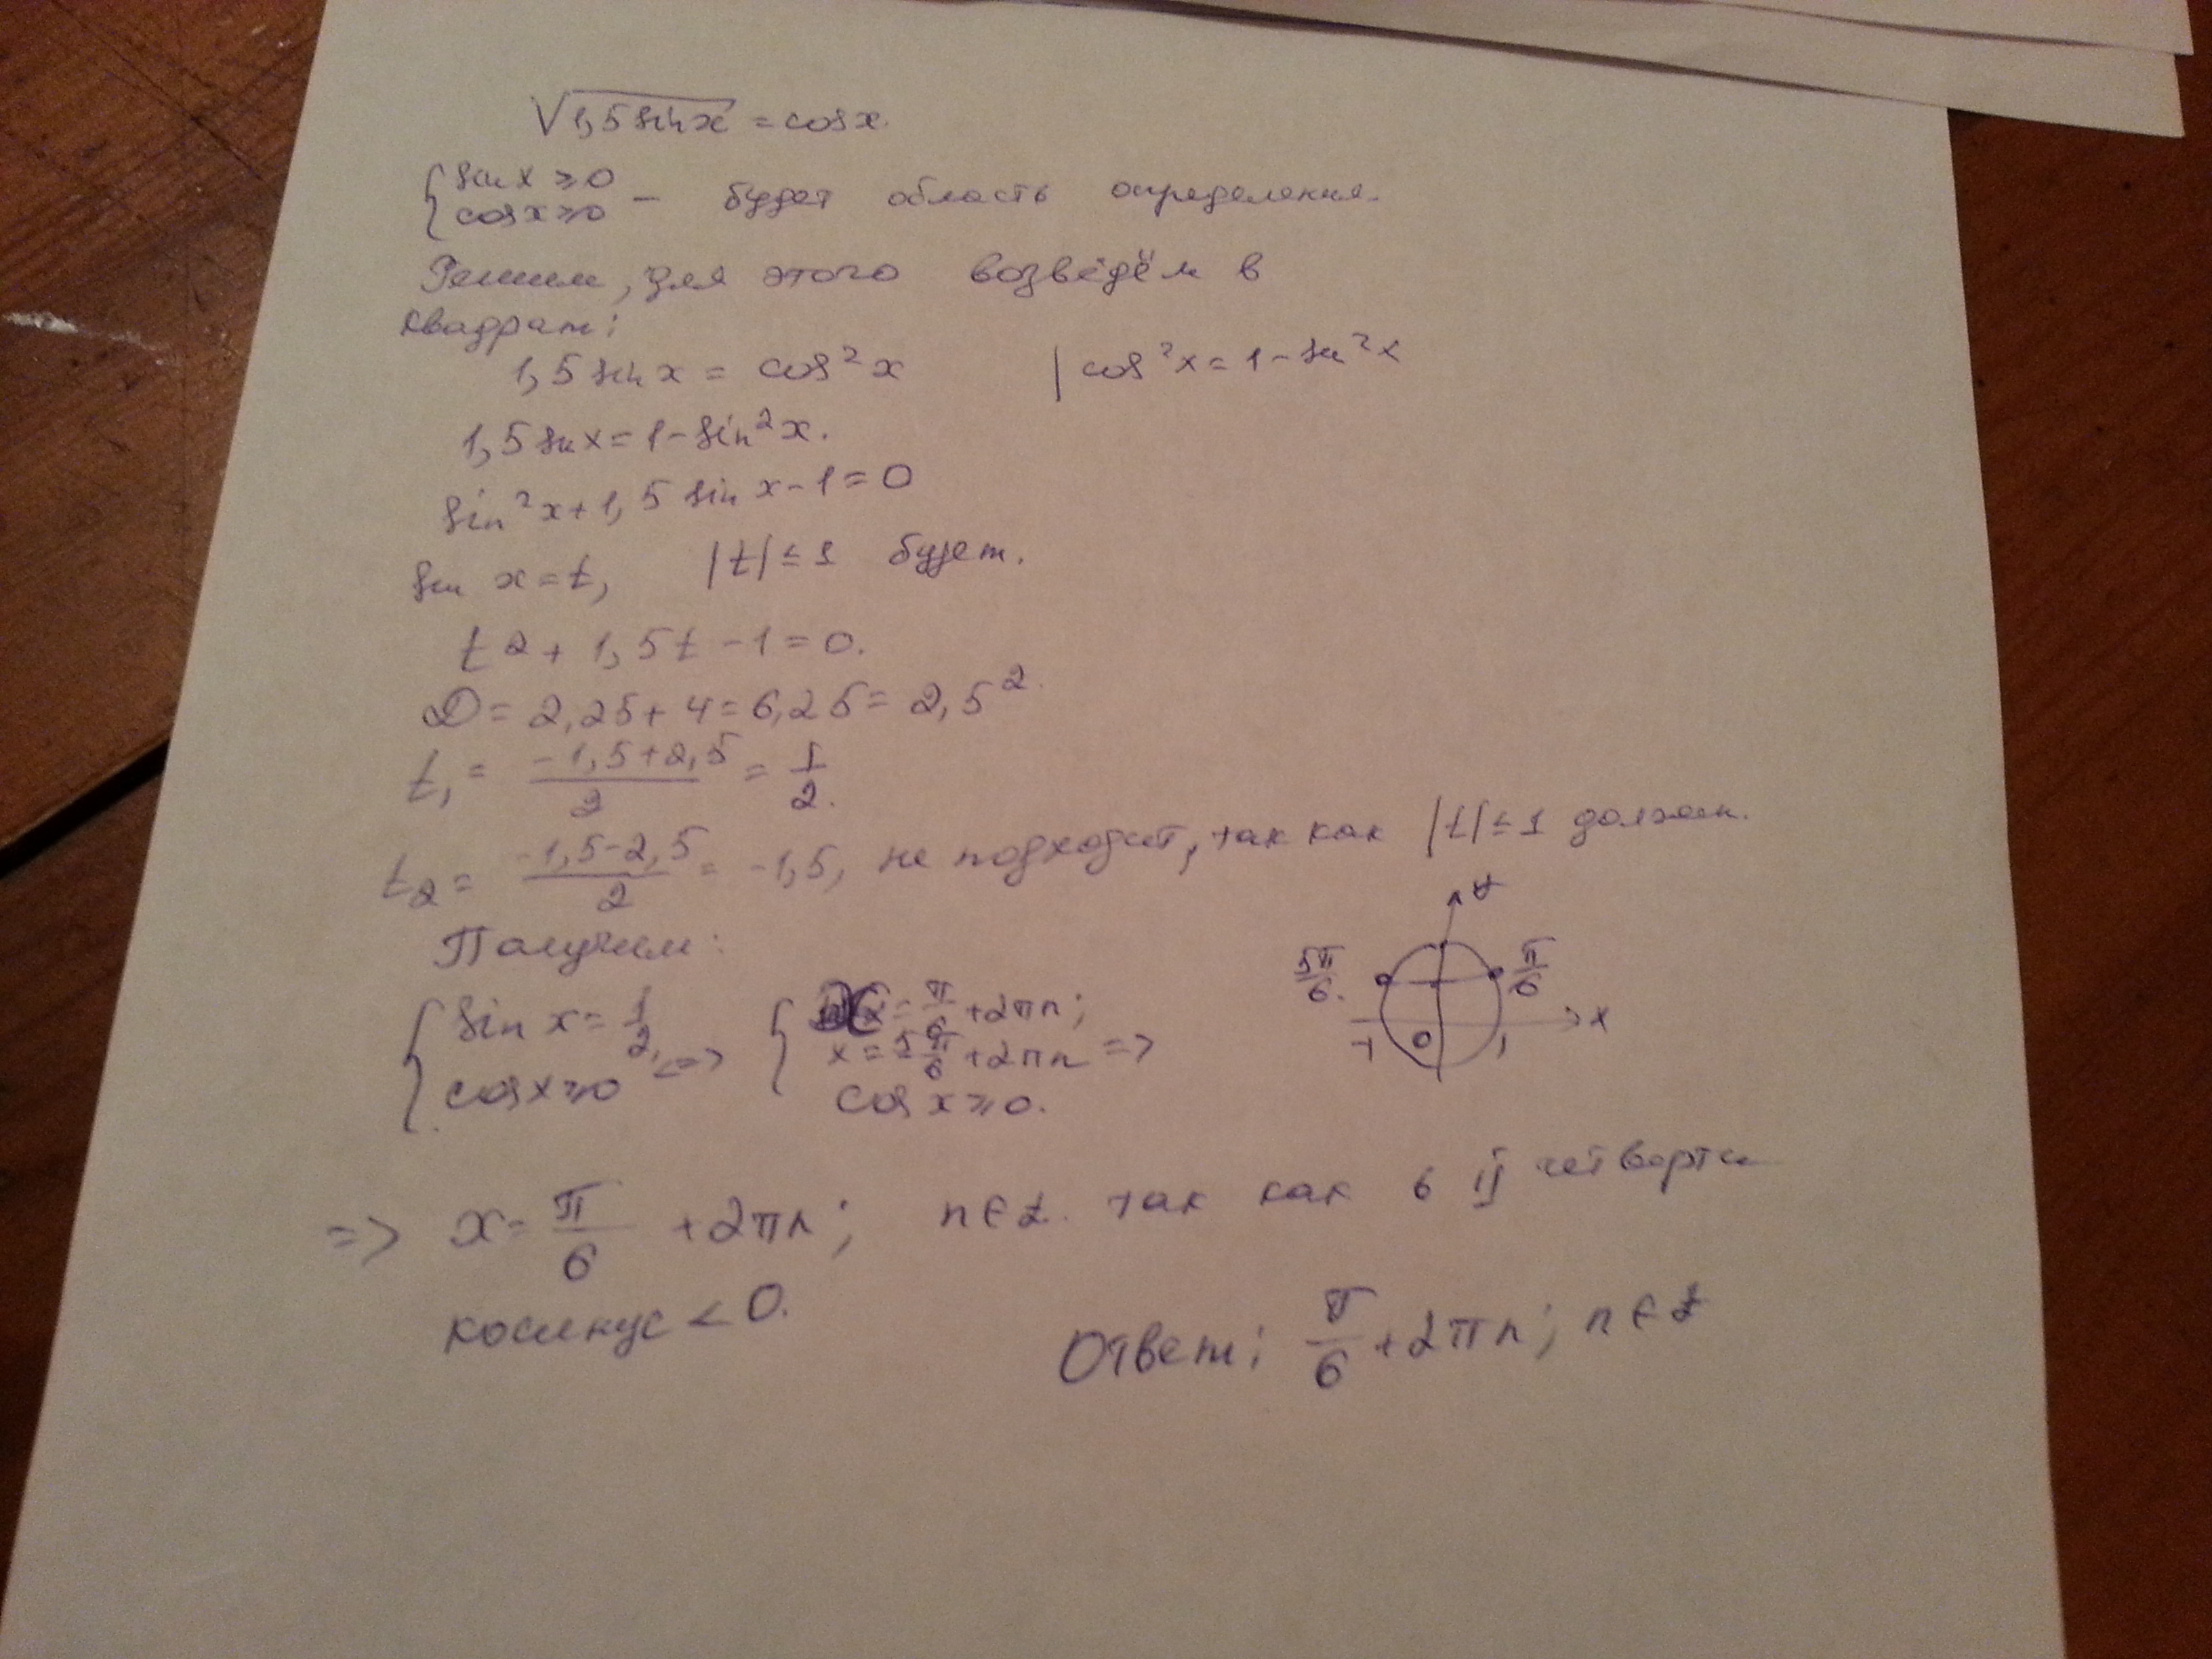 √1,5 sin x = cos x.
{ sin x ≥ 0
cos x ≥ 0 – будет область определения.
Решим, для этого возведём в
квадрат:
1,5 sin x = cos² x | cos² x = 1 - sin² x
1,5 sin x = 1 - sin² x.
sin² x + 1,5 sin x - 1 = 0
sin x = t, |t| ≤ 1 будет.
t² + 1,5t - 1 = 0.
D = 2,25 + 4 = 6,25 = 2,5².
t₁ = (-1,5+2,5)/2 = 1/2.
t₂ = (-1,5-2,5)/2 = -1,5, не подходит, так как |t| ≤ 1 должен.
Получим:
{ sin x = 1/2,
cos x ≥ 0 <=>
{ x = π/6 + 2πn;
x = 5π/6 + 2πn =>
cos x ≥ 0.
y
5π/6. π/6
-1 0 1 x
=> x = π/6 + 2πn; n ∈ Z. так как в II четверти
косинус < 0.
Ответ: π/6 + 2πn; n ∈ Z